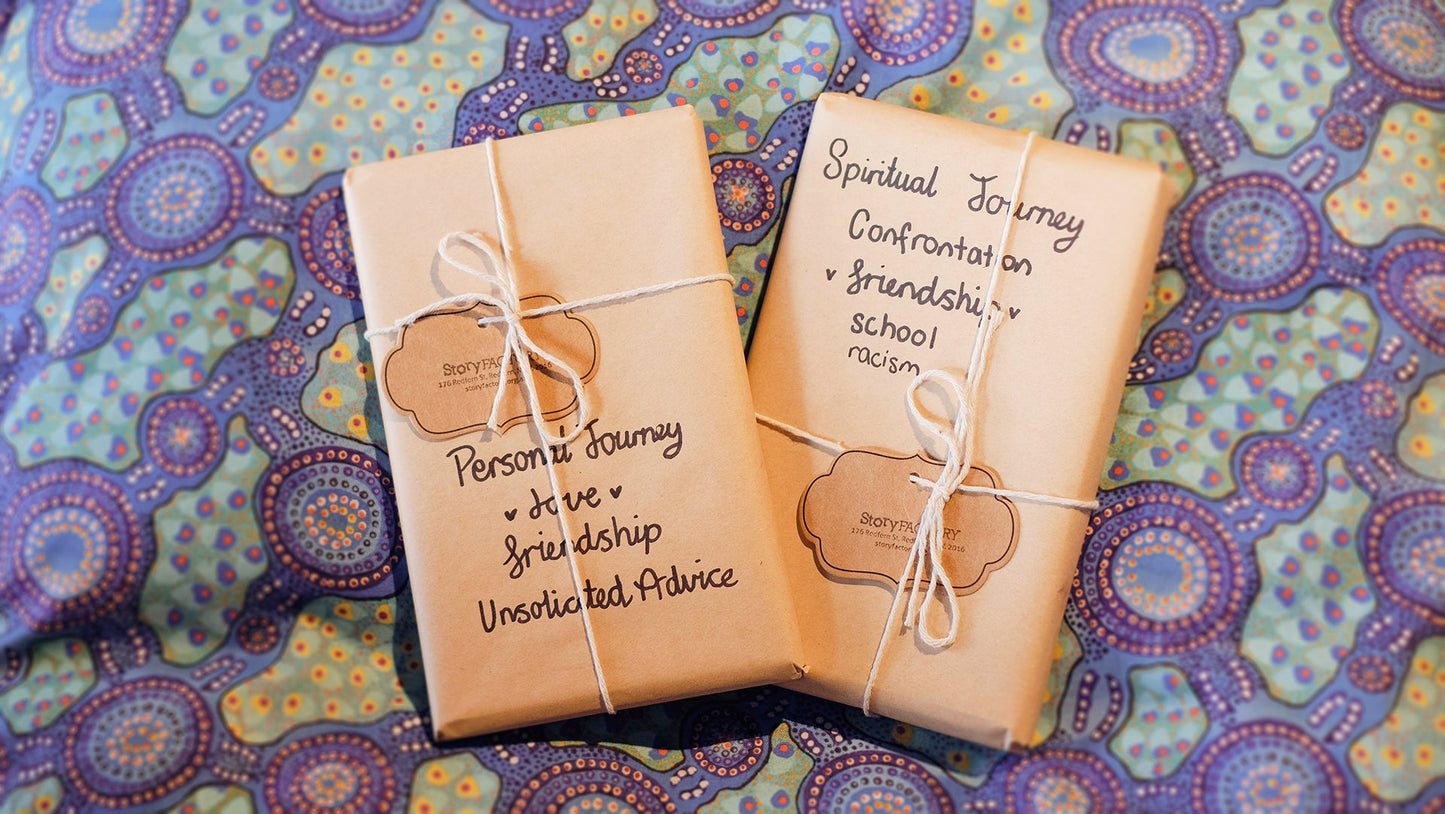 StoryFACTORY
176 Redfern St, Redfern 2016
storyfactory.org
Personal Journey
Love
friendship
Unsolicated Advice
Spiritual Journey
Confrontation
friendship
school
racism
StoryFACTORY
176 Redfern St, Redfern 2016
storyfactory